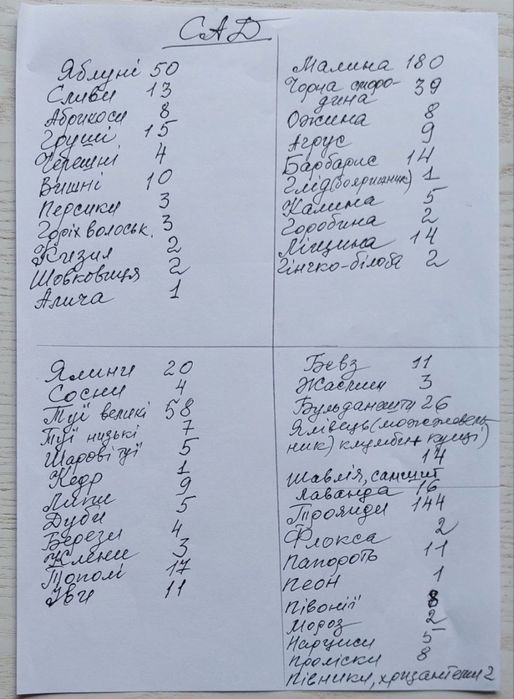 САД
Яблуні 50
Сливи 13
Абрикоси 8
Груші 15
Черешні 4
Вишні 10
Персики 3
Горіх волоськ. 3
Кизил 2
Шовковиця 2
Алича 1
Малина 180
Чорна сморо-
дина 39
Ожина 8
Агрус 9
Барбарис 14
Глід (бояришник) 1
Калина 5
Горобина 2
Ліщина 14
Гінчко-білоба 2
Ялини 20
Сосни 4
Туї великі 58
Туї низькі 7
Шарові туї 5
Кедр 1
Липи 9
Дуби 5
Берези 4
Клени 3
Тополі 17
Іви 11
Бевз 11
Жасмин 3
Бульданежи 26
Ялівець (можжевель-
ник) клумби + кущі)
14
Шавлія, самшит
Лаванда 16
Троянди 144
Флокса 2
Папороть 11
Пеон 1
Півонії 8
Мороз 2
Нарциси 5
Проліски 8
Півники, хризантеми 2